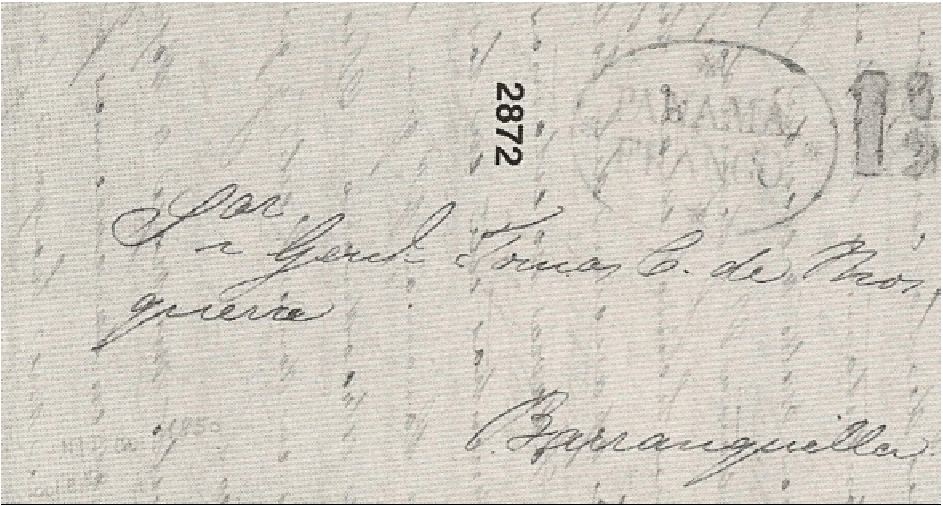 2872
PANAMA
FRANCO
1
Sor
Genl. Tomas C. de Mos
quera
Barranquilla
1850